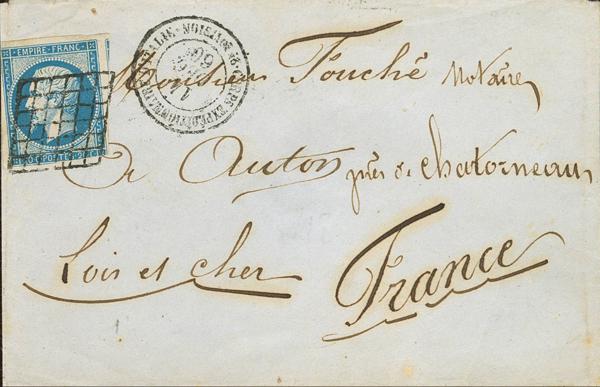 EMPIRE FRANC
20 C POSTES 20 C
CORPS EXPEDITIONNAIRE ITALIE
2E DIVISION
60
Monsieur Fouché Notaire
à Auton près de chatorneau
Loir et cher
France